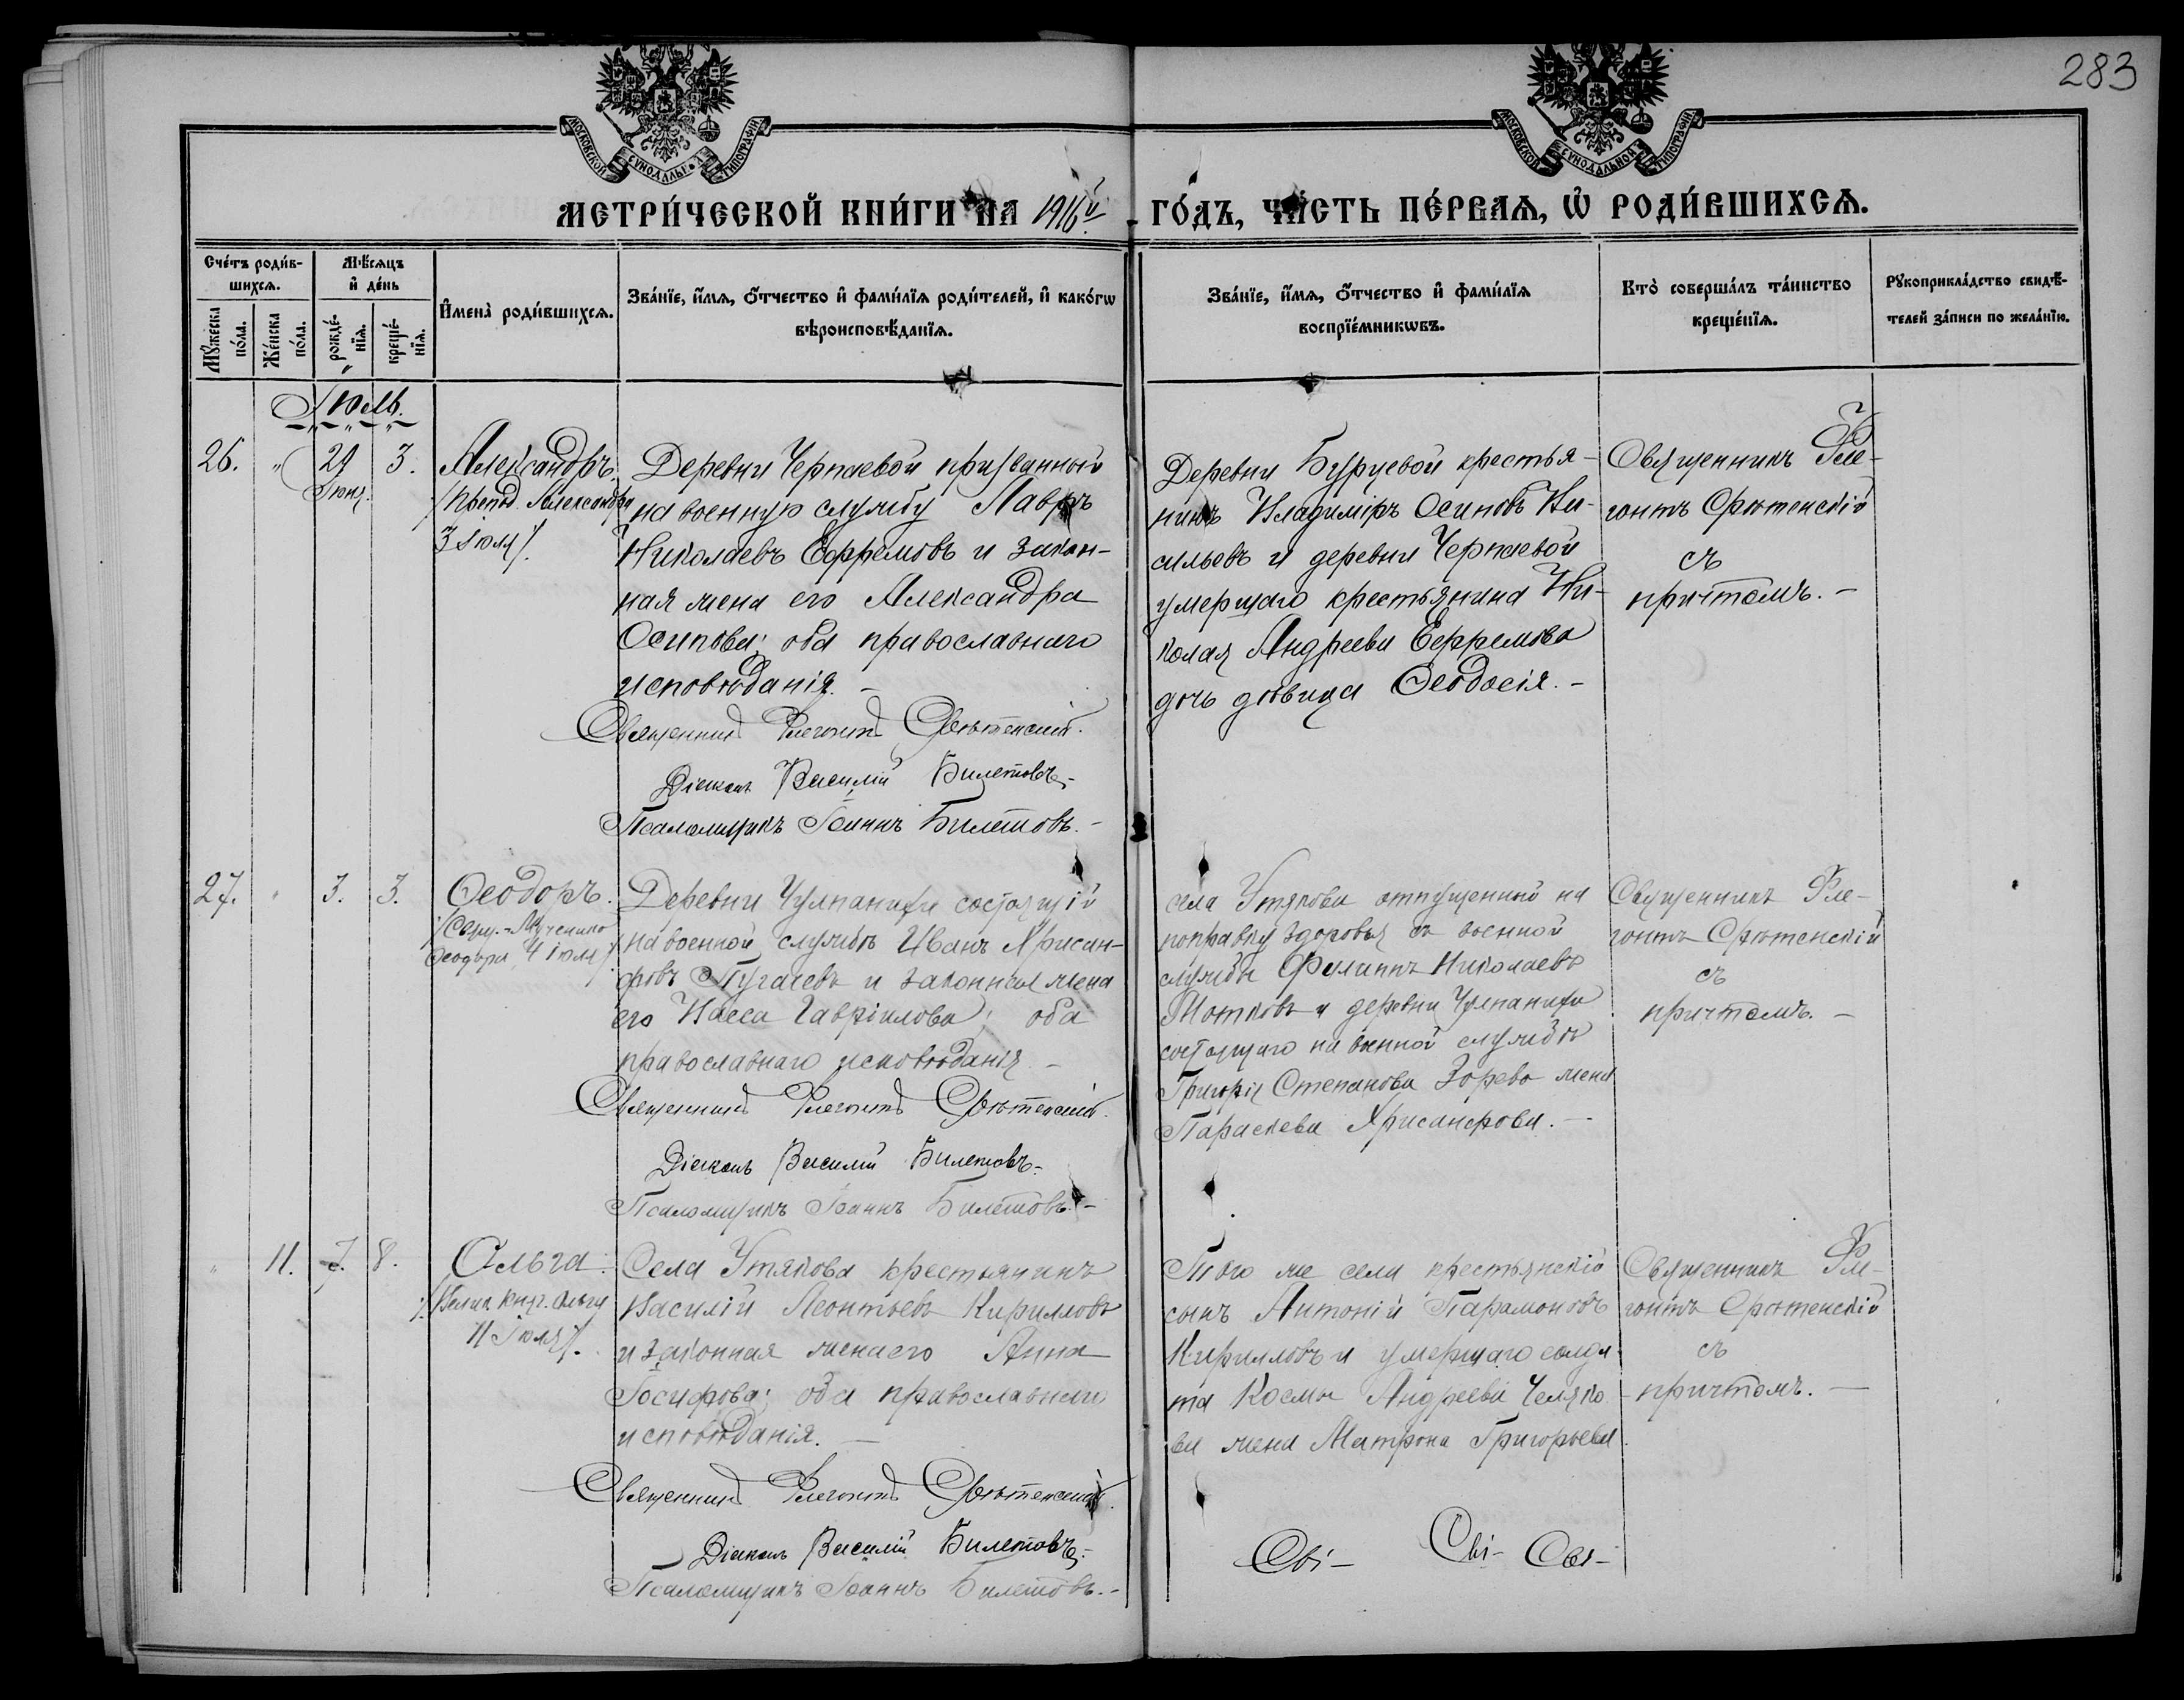 283
МОСКОВСКОЙ СѴНОДАЛЬНОЙ ТИПОГРАФІИ
МОСКОВСКОЙ СѴНОДАЛЬНОЙ ТИПОГРАФІИ
МЕТРИ́ЧЕСКОЙ КНИ́ГИ НА 1916й ГО́ДЪ, ЧА́СТЬ ПЕ́РВАЯ, Ѡ РОДИ́ВШИХСЯ.
Сче́тъ роди́в-
шихся.
Му́жеска по́ла.
Же́нска по́ла.
Мѣ́сяцъ
и де́нь
рожде́-
нїя.
креще́-
нїя.
Имена̀ роди́вшихся.
Зва́нїе, и́мя, о́тчество и фами́лїя роди́телей, и како́гѡ
вѣроисповѣ́данїя.
Зва́нїе, и́мя, о́тчество и фами́лїя
воспрїе́мникѡвъ.
Кто̀ соверша́лъ та́инство
креще́нїя.
Рꙋкоприкла́дство свидѣ́-
телей за́писи по жела́нїю.
Іюль.
26. " 29 3.
Іюня.
Александръ.
/Препод. Александра
3 Іюля/.
Деревни Черпаевой призванный
на военную службу Лавръ
Николаевъ Ефремовъ и закон-
ная жена его Александра
Осипова; оба православнаго
исповѣданія. –
Священникъ Флегонтъ Срѣтенскій.
Діаконъ Василій Билетовъ.-
Псаломщикъ Іоаннъ Билетовъ.-
Деревни Бурцевой крестья-
нинъ Владиміръ Осиповъ Ва-
сильевъ и деревни Черпаевой
умершаго крестьянина Ни-
колая Андреева Ефремова
дочь дѣвица Ѳеодосія. –
Священникъ Фле-
гонтъ Срѣтенскій
съ
причтомъ. –
27. " 3. 3.
Ѳеодоръ.
/Свящ.-Мученика
Ѳеодора, 4 іюля/
Деревни Чулпанихи состоящій
на военной службѣ Иванъ Хрисан-
фовъ Пугачевъ и законная жена
его Васса Гавріилова; оба
православнаго исповѣданія. –
Священникъ Флегонтъ Срѣтенскій.
Діаконъ Василій Билетовъ.-
Псаломщикъ Іоаннъ Билетовъ.-
села Утякова отпущенный на
поправку здоровья съ военной
службы Филиппъ Николаевъ
и деревни Чулпанихи
состоящаго на военной службѣ
Григорія Степанова жена
Параскева Хрисанфова. –
Священникъ Фле-
гонтъ Срѣтенскій
съ
причтомъ. –
" 11. 7. 8.
Ольга.
/Велик. Княг. Ольги
11 Іюля/.
Села Утякова крестьянинъ
Василій Леонтьевъ Кирилловъ
и законная жена его Анна
Іосифова; оба православнаго
исповѣданія. –
Священникъ Флегонтъ Срѣтенскій.
Діаконъ Василій Билетовъ.-
Псаломщикъ Іоаннъ Билетовъ.-
Того же села крестьянскій
сынъ Антоній Парамоновъ
Кирилловъ и умершаго солда-
та Космы Андреева Челяко-
ва жена Матрона Григорьева.
Священникъ Фле-
гонтъ Срѣтенскій
съ
причтомъ. –